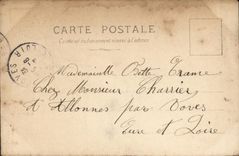 CARTE POSTALE
Ce côté est exclusivement réservé à l'adresse
Mademoiselle
Chez Monsieur Charrier
d'Allonnes par Voves
Eure et Loir